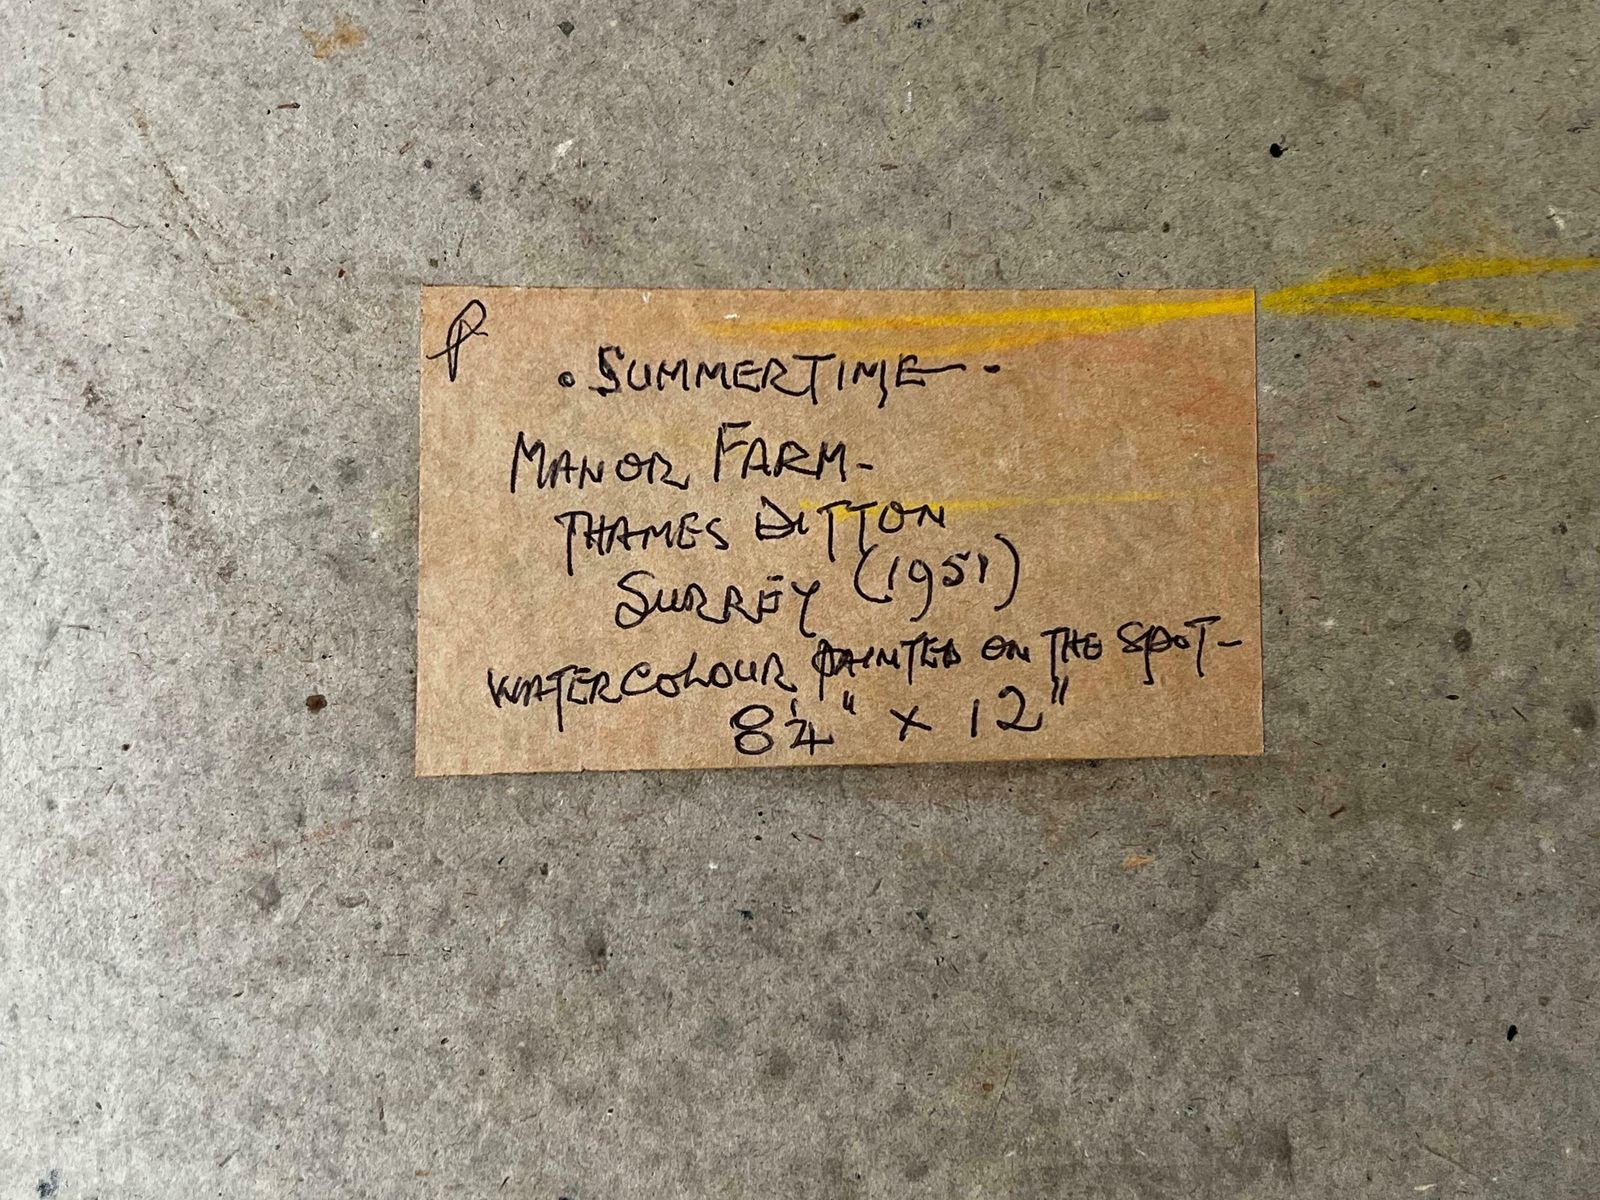 . SUMMERTIME - .
MANOR FARM -
THAMES DITTON
SURREY (1951)
WATERCOLOUR PAINTED ON THE SPOT -
8¼" x 12"